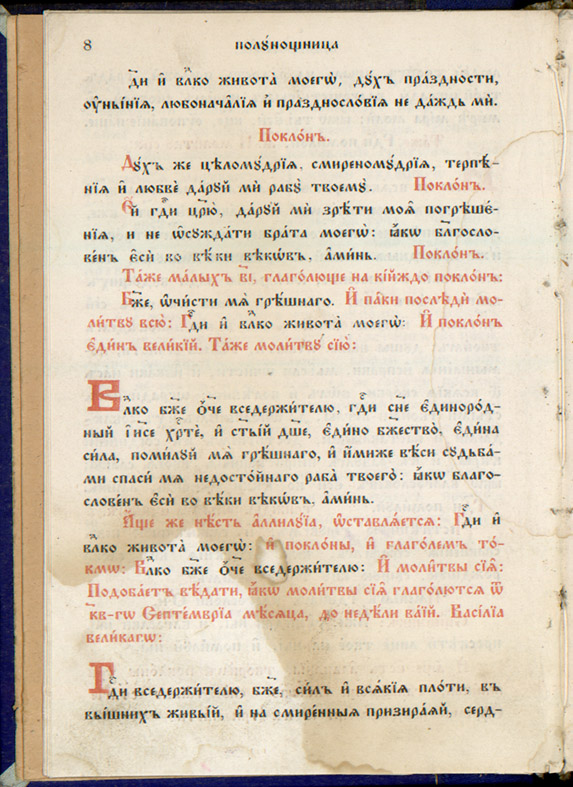 8 полꙋ́нощница
дⷭ҇и и҆ влⷣко живота̀ моегѡ̀, дꙋ́хъ пра́здности,
ᲂу҆ны́нїѧ, любонача́лїѧ и҆ праздносло́вїѧ не да́ждь мѝ.
Покло́нъ.
Дꙋ́хъ же цѣломꙋ́дрїѧ, смиреномꙋ́дрїѧ, терпѣ́-
нїѧ и҆ любвѐ да́рꙋй мѝ рабꙋ̀ твоемꙋ̀. Покло́нъ.
Є҆́й гдⷭ҇и цр҃ю̀, да́рꙋй мѝ зрѣ́ти моѧ҄ погрѣшє́-
нїѧ, и҆ не ѡ҆сꙋжда́ти бра́та моегѡ̀: ꙗ҆́кѡ благосло-
ве́нъ є҆сѝ во вѣ́ки вѣкѡ́въ, а҆ми́нь. Покло́нъ.
Та́же ма́лыхъ в҃і, глаго́люще на кі́йждо покло́нъ:
Бж҃е, ѡ҆чи́сти мѧ̀ грѣ́шнаго. И҆ па́ки послѣдѝ мо-
ли́твꙋ всю̀: Гдⷭ҇и и҆ влⷣко живота̀ моегѡ̀: И҆ покло́нъ
є҆ди́нъ вели́кїй. Та́же моли́твꙋ сїю̀:
Влⷣко бж҃е ѻ҆́ч҃е вседержи́телю, гдⷭ҇и сн҃е є҆диноро́д-
ный і҆и҃се хрⷭ҇тѐ, и҆ ст҃ы́й дш҃е, є҆ди́но бж҃ество̀, є҆ди́на
си́ла, поми́лꙋй мѧ̀ грѣ́шнаго, и҆ и҆́миже вѣ́си сꙋдьба́-
ми спасѝ мѧ̀ недосто́йнаго раба̀ твоего̀: ꙗ҆́кѡ благо-
слове́нъ є҆сѝ во вѣ́ки вѣкѡ́въ, а҆ми́нь.
А҆́ще же нѣ́сть а҆ллилꙋ́їа, ѡ҆ставлѧ́етсѧ: Гдⷭ҇и и҆
влⷣко живота̀ моегѡ̀: и҆ покло́ны, и҆ глаго́лемъ то́-
кмѡ: Влⷣко бж҃е ѻ҆́ч҃е вседержи́телю: И҆ моли́твы сїѧ҄:
Подоба́етъ вѣ́дати, ꙗ҆́кѡ моли́твы сїѧ҄ глаго́лютсѧ ѿ
к҃в-гѡ Септе́мврїа мѣ́сѧца, до недѣ́ли ва́їй. Васі́лїа
вели́кагѡ:
Гдⷭ҇и вседержи́телю, бж҃е, си́лъ и҆ всѧ́кїѧ пло́ти, въ
вы́шнихъ живы́й, и҆ на смирє́нныѧ призира́ѧй, серд-